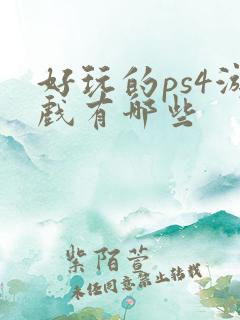 好玩的ps4游
戏有哪些
紫陌萱
未经同意禁止转载